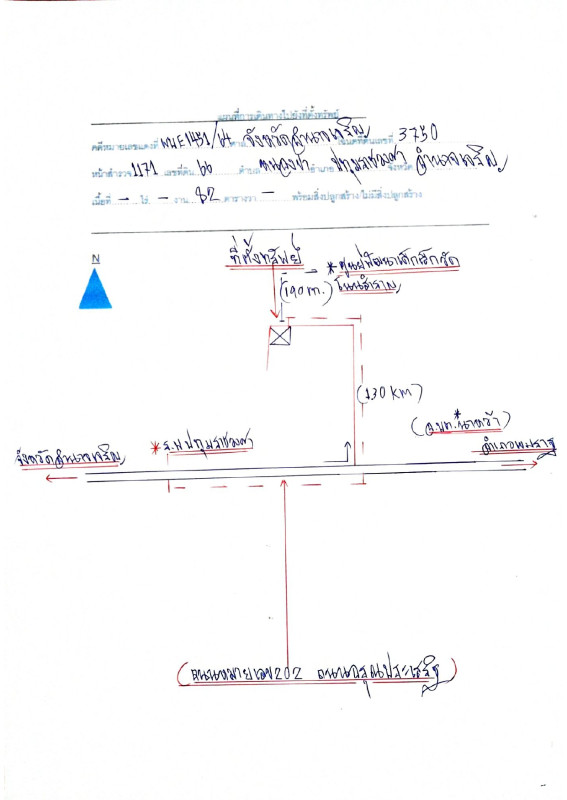 แผนที่การเดินทางไปยังที่ตั้งทรัพย์
คดีหมายเลขแดงที่ ผบE1451/64 จังหวัดอำนาจเจริญ โฉนดที่ดินเลขที่ 3750
หน้าสำรวจ 1171 เลขที่ดิน 66 ตำบล หนองข่า อำเภอ ปทุมราชวงศา จังหวัด อำนาจเจริญ
เนื้อที่ - ไร่ - งาน 82 ตารางวา - พร้อมสิ่งปลูกสร้าง/ไม่มีสิ่งปลูกสร้าง
N
ที่ตั้งทรัพย์
*ศูนย์พัฒนาเด็กเล็กวัด
(190 m.) โนนสำราญ
(1.30 KM)
*ร.พ ปทุมราชวงศา
(อ.บต.*นาหว้า)
จังหวัดอำนาจเจริญ
อำเภอพนา
(ถนนหมายเลข 202 ถนนอรุณประเสริฐ)